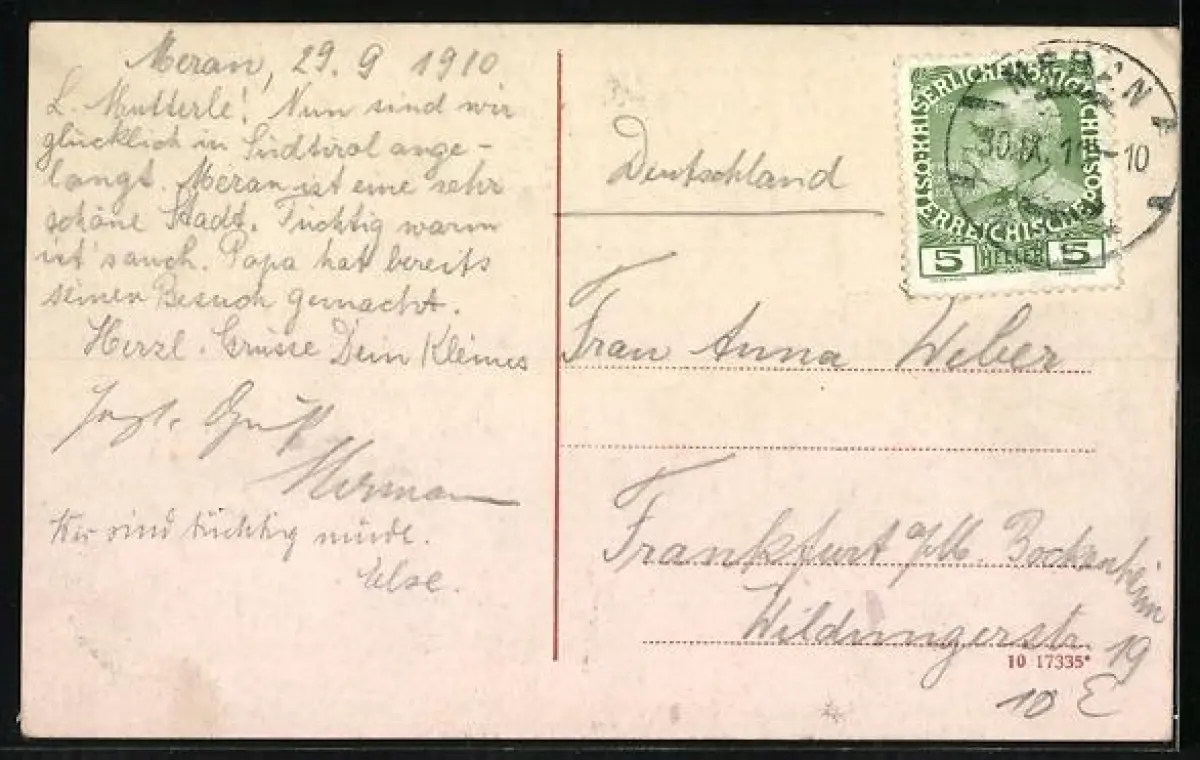 Meran, 29. 9 1910
L. Mutterle! Nun sind wir
glücklich in Südtirol ange-
langt. Meran ist eine sehr
schöne Stadt. Tüchtig warm
ist's auch. Papa hat bereits
seinen Besuch gemacht.
Herzl. Grüsse Dein Kleines
Herzl. Gruß
Herman
Wir sind tüchtig müde.
Else.
MERAN
30.IX.10
KAISERLICHE KÖNIGLICHE ÖSTERREICHISCHE
5 HELLER 5
Deutschland
Frau Anna Weber
Frankfurt a/M. Bockenheim
Wildungerstr. 19
10 17335*
10 E